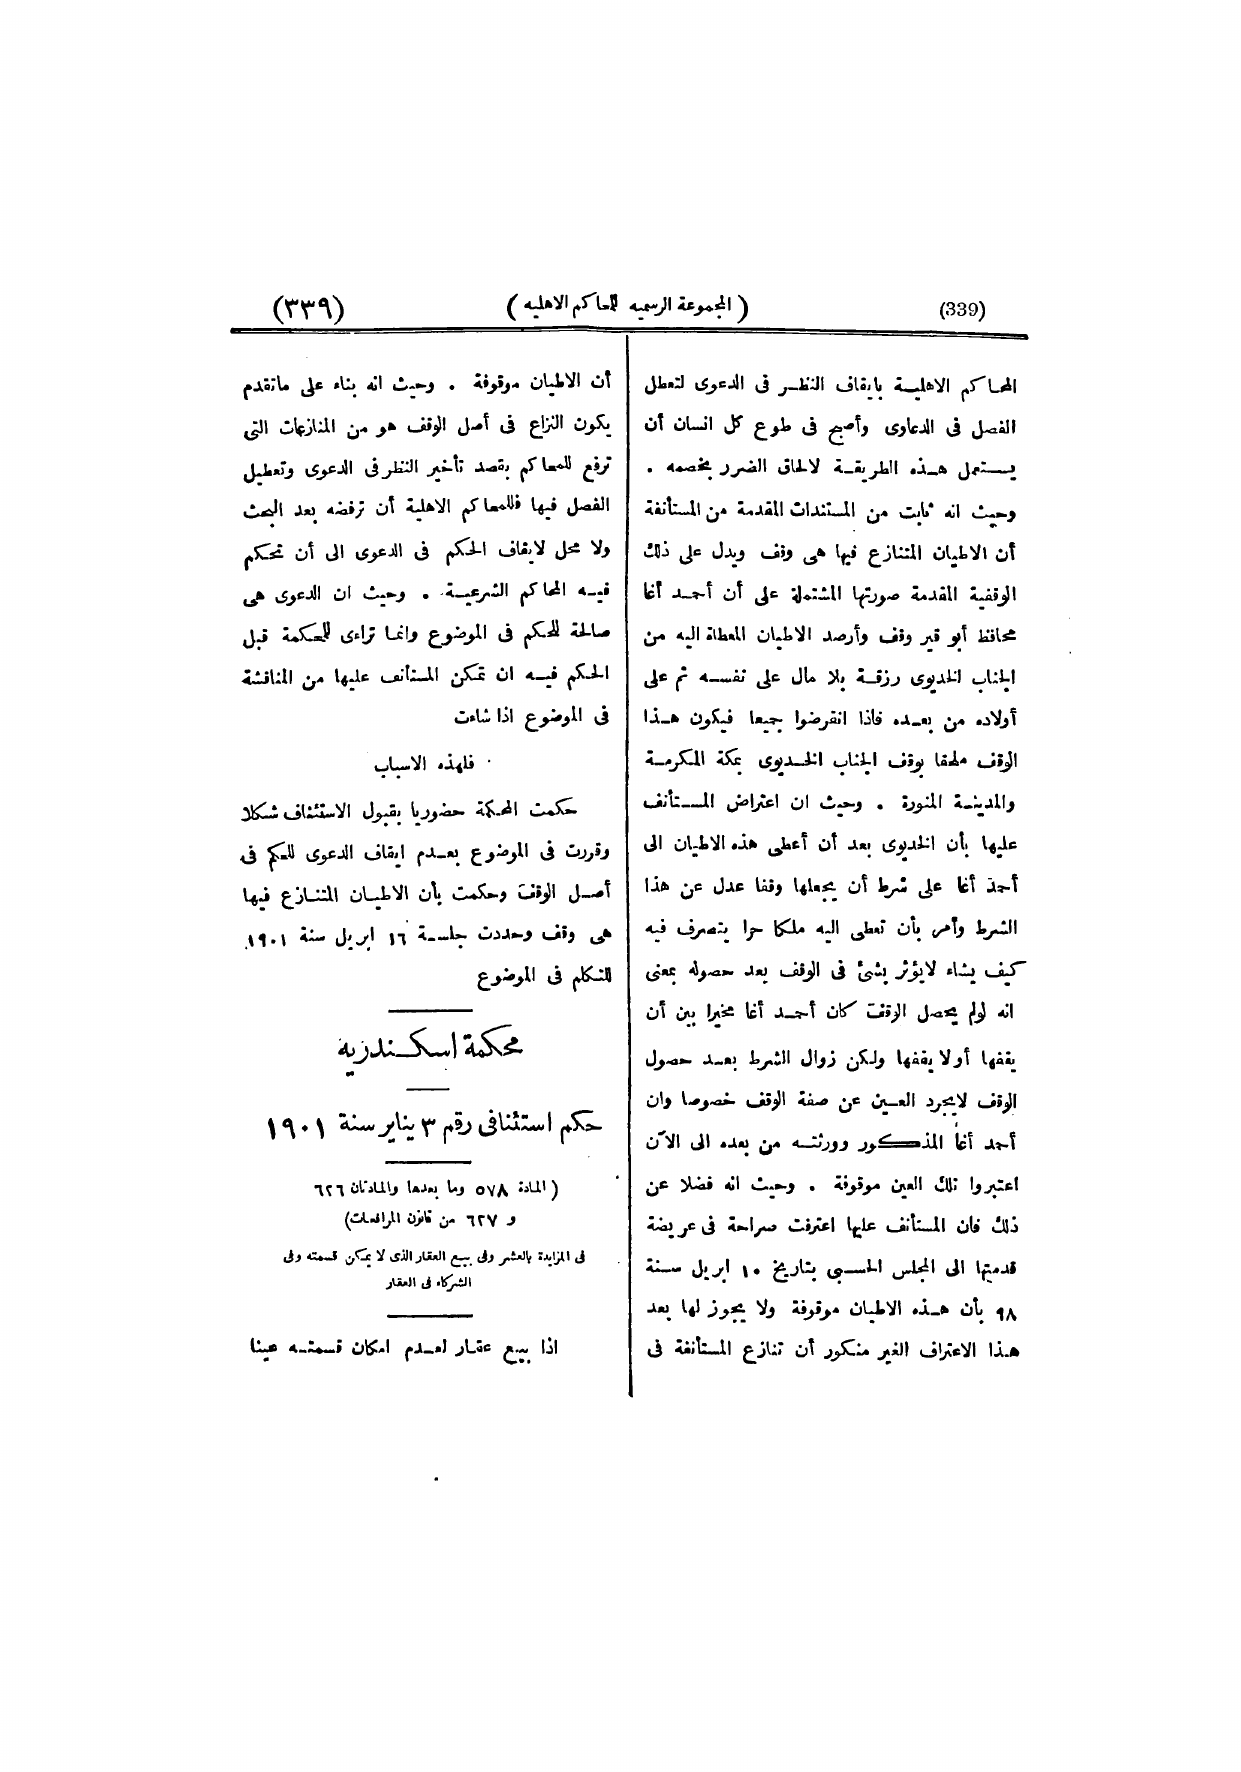 (339)
( المجموعة الرسميه للمحاكم الاهليه )
(٣٣٩)
المحاكم الاهلية بايقاف النظر فى الدعوى لتعطل
الفصل فى الدعاوى وأصبح فى طوع كل انسان أن
يستعمل هذه الطريقة لالحاق الضرر بخصمه .
وحيث انه ثابت من المستندات المقدمة من المستأنفة
أن الاطيان المتنازع فيها هى وقف ويدل على ذلك
الوقفية المقدمة صورتها المشتملة على أن أحمد أغا
محافظ أبو قير وقف وأرصد الاطيان المعطاة اليه من
الجناب الخديوى رزقة بلا مال على نفسه ثم على
أولاده من بعده فاذا انقرضوا جميعا فيكون هذا
الوقف ملحقا بوقف الجناب الخديوى بمكة المكرمة
والمدينة المنورة . وحيث ان اعتراض المستأنف
عليها بأن الخديوى بعد أن أعطى هذه الاطيان الى
أحمد أغا على شرط أن يجعلها وقفا عدل عن هذا
الشرط وأمر بأن تعطى اليه ملكا حرا يتصرف فيه
كيف يشاء لايؤثر بشئ فى الوقف بعد حصوله بمعنى
انه لولم يحصل الوقف كان أحمد أغا مخيرا بين أن
يقفها أولا يقفها ولكن زوال الشرط بعد حصول
الوقف لايجرد العين عن صفة الوقف خصوصا وان
أحمد أغا المذكور وورثته من بعده الى الآن
اعتبروا تلك العين موقوفة . وحيث انه فضلا عن
ذلك فان المستأنف عليها اعترفت صراحة فى عريضة
قدمتها الى المجلس الحسبى بتاريخ ١٠ ابريل سنة
٩٨ بأن هذه الاطيان موقوفة ولا يجوز لها بعد
هذا الاعتراف الغير منكور أن تنازع المستأنفة فى
أن الاطيان موقوفة . وحيث انه بناء على ماتقدم
يكون النزاع فى أصل الوقف هو من المنازعات التى
ترفع للمحاكم بقصد تأخير النظر فى الدعوى وتعطيل
الفصل فيها فللمحاكم الاهلية أن ترفضه بعد البحث
ولا محل لايقاف الحكم فى الدعوى الى أن تحكم
فيه المحاكم الشرعية . وحيث ان الدعوى هى
صالحة للحكم فى الموضوع وانما تراءى للمحكمة قبل
الحكم فيه ان تمكن المستأنف عليها من المناقشة
فى الموضوع اذا شاءت
فلهذه الاسباب
حكمت المحكمة حضوريا بقبول الاستئناف شكلا
وقررت فى الموضوع بعدم ايقاف الدعوى للحكم فى
أصل الوقف وحكمت بأن الاطيان المتنازع فيها
هى وقف وحددت جلسة ١٦ ابريل سنة ١٩٠١
للتكلم فى الموضوع
محكمة اسكندريه
حكم استئنافى رقم ٣ يناير سنة ١٩٠١
( المادة ٥٧٨ وما بعدها والمادتان ٦٢٦
و ٦٢٧ من قانون المرافعات)
فى المزايدة بالعشر وفى بيع العقار الذى لا يمكن قسمته وفى
الشركاء فى العقار
اذا بيع عقار لعدم امكان قسمته عينا